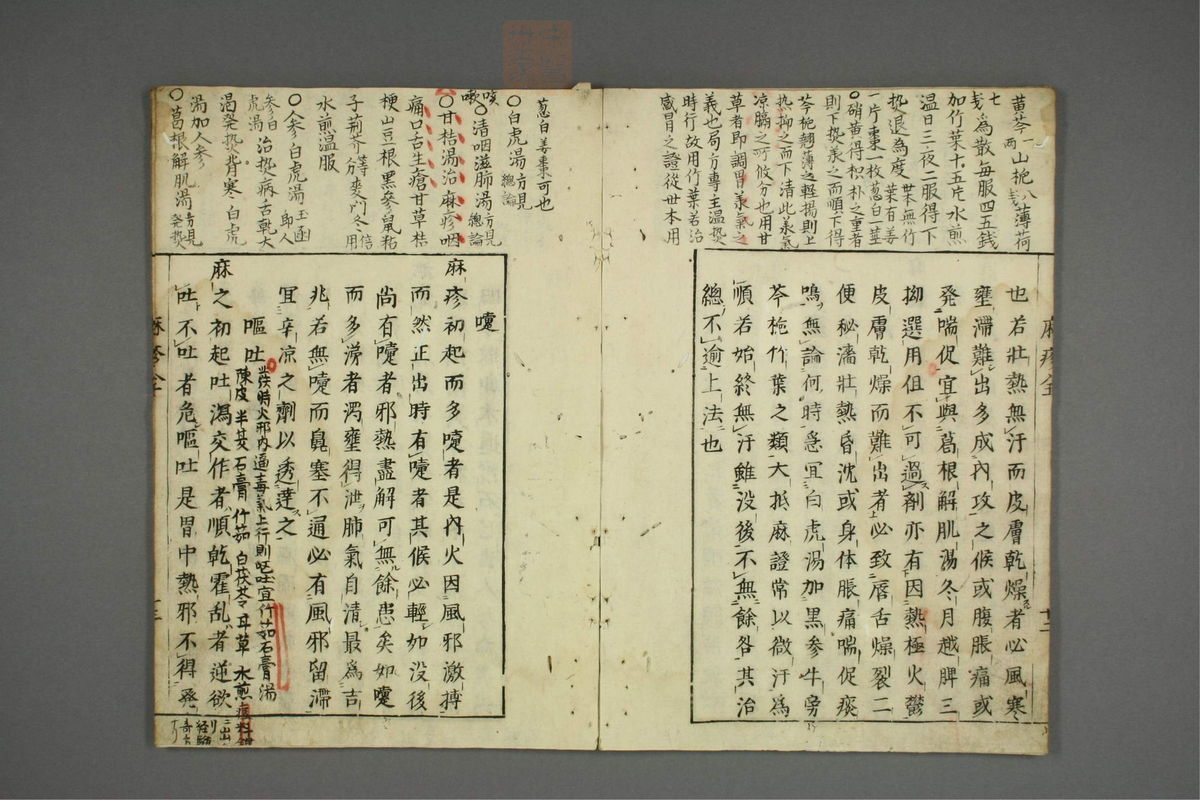 黄芩一両 山梔八 薄荷
七 為散毎服四五銭
加竹葉十五片水煎
温日三夜二服得一下
熱退為度 世本無竹葉有姜
一片棗一枚葱白一茎
○硝黄得枳朴之重者
則下熱 之而順下得
芩梔翹薄之軽揚則上
熱抑之而下清此
凉膈之所 分也用甘
草者即調胃 氣之
義也局方専主温熱
時行故用竹葉若治
感冒之證従世本用
葱白姜棗可也
也若壯熱無汗而皮膚乾燥者必風寒
壅滞難出多成內攻之候或腹脹痛或
發喘促宜與葛根解肌湯冬月越脾三
拗選用但不可過劑亦有因熱極火鬱
皮膚乾燥而難出者必致唇舌燥裂二
便秘濇壯熱昏沈或身体脹痛喘促痰
鳴無論何時急宜白虎湯加黒參牛旁
芩梔竹葉之類大抵麻證常以微汗為
順若始終無汗雖没後不無餘咎其治
總不逾上法也
麻疹全
十二
○白虎湯方見總論
咳嗽○清咽滋肺湯方見總論
○甘桔湯治麻疹咽
痛口舌生瘡甘草桔
梗山豆根黒參鼠粘
子荊芥等分麥門冬倍用
水前温服
○人參白虎湯玉函即人
參白虎湯治熱病舌乾大
渇發熱背寒白虎
湯加人參
○葛根解肌湯方見發熱
嚏
麻疹初起而多嚏者是內火因風邪激搏
而然正出時有嚏者其候必輕如没後
尚有嚏者邪熱盡解可無餘患矣如嚏
而多涕者濁壅得泄肺氣自清最為吉
兆若無嚏而鼻塞不通必有風邪留滞
宜辛凉之劑以透達之
嘔吐
此疾時火邪内逼毒氣上行則嘔吐宜竹茹石膏湯
陳皮 半夏 石膏 竹茹 白茯苓 甘草 水煎
麻之初起吐瀉交作者順乾霍亂者逆欲
吐不吐者危嘔吐是胃中熱邪不得發